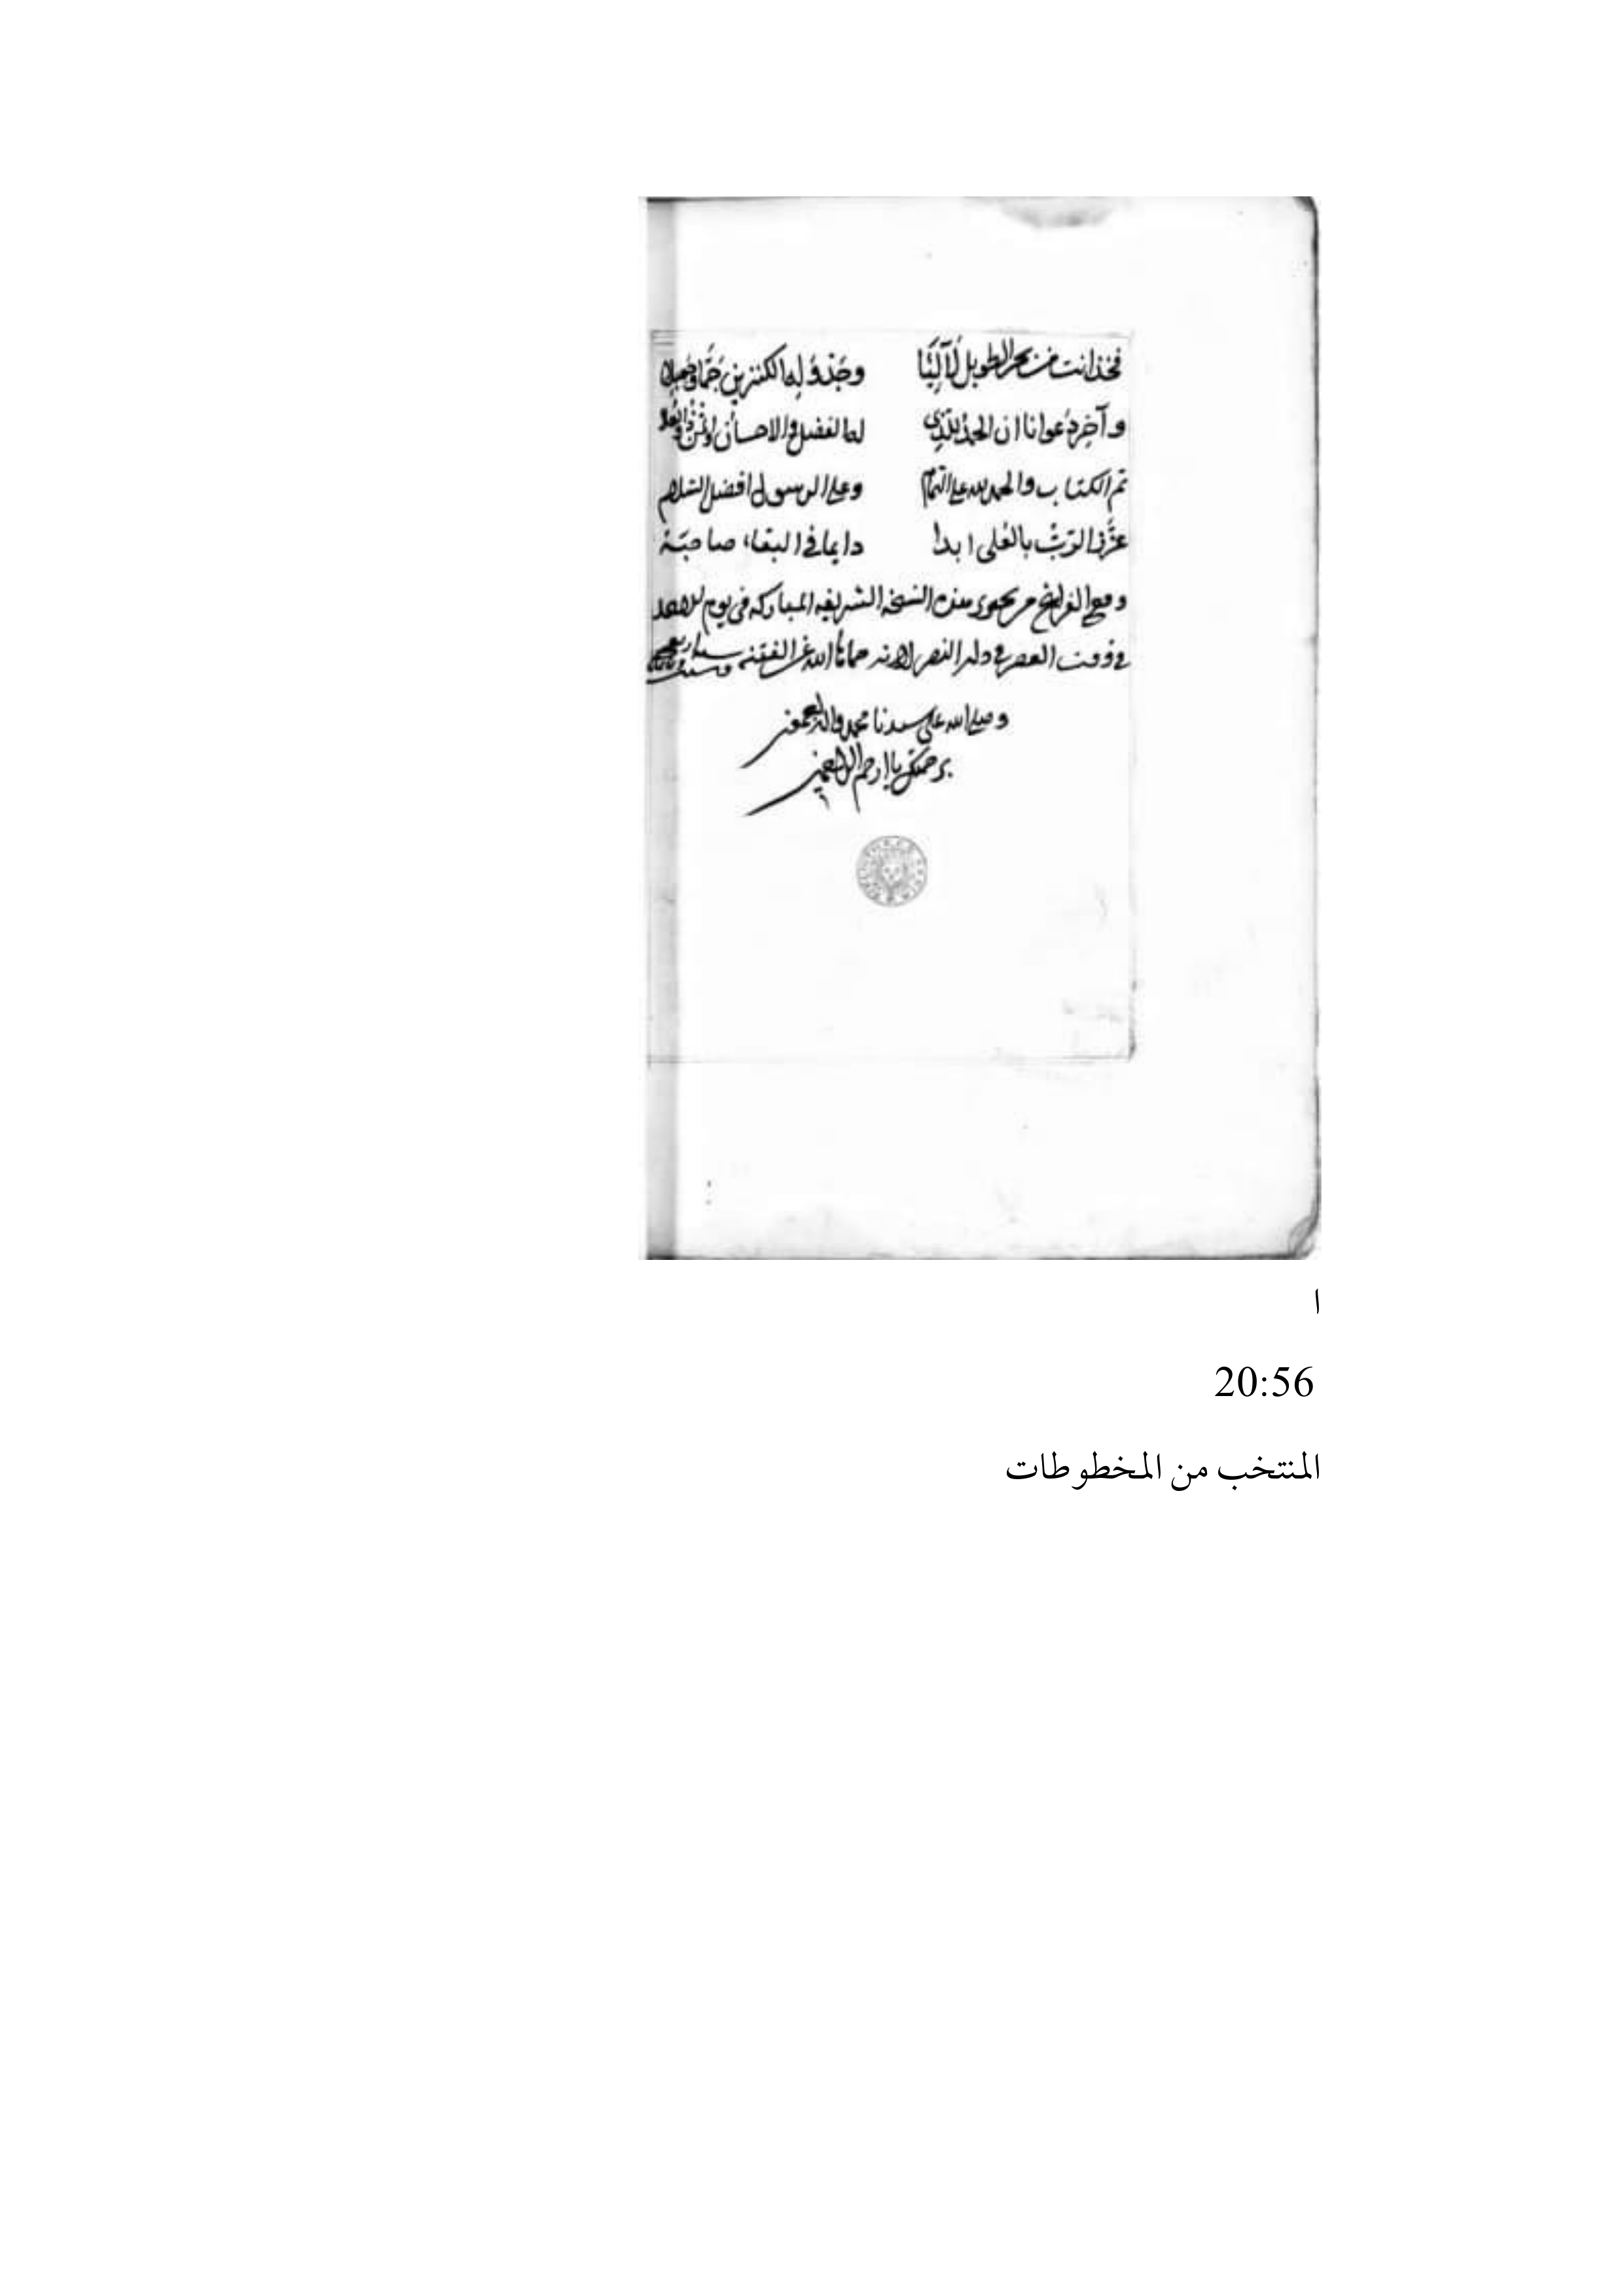 فخذ انت من بحر الطويل لآلئا وخذ
وآخر دعوانا ان الحمد للذي له الفضل والاحسان
تم الكتاب والحمد لله على التمام وعلى الرسول افضل السلام
عزة الرب بالعلى ابدا دايما في البقاء صاحبته
وقع الفراغ من تحرير هذه النسخة الشريفه المباركه في يوم الاحد
في وقت العصر في حمانا الله عن الفتنه
وصلى الله على سيدنا محمد واله اجمعين
برحمتك يا ارحم الراحمين
ا
20:56
المنتخب من المخطوطات